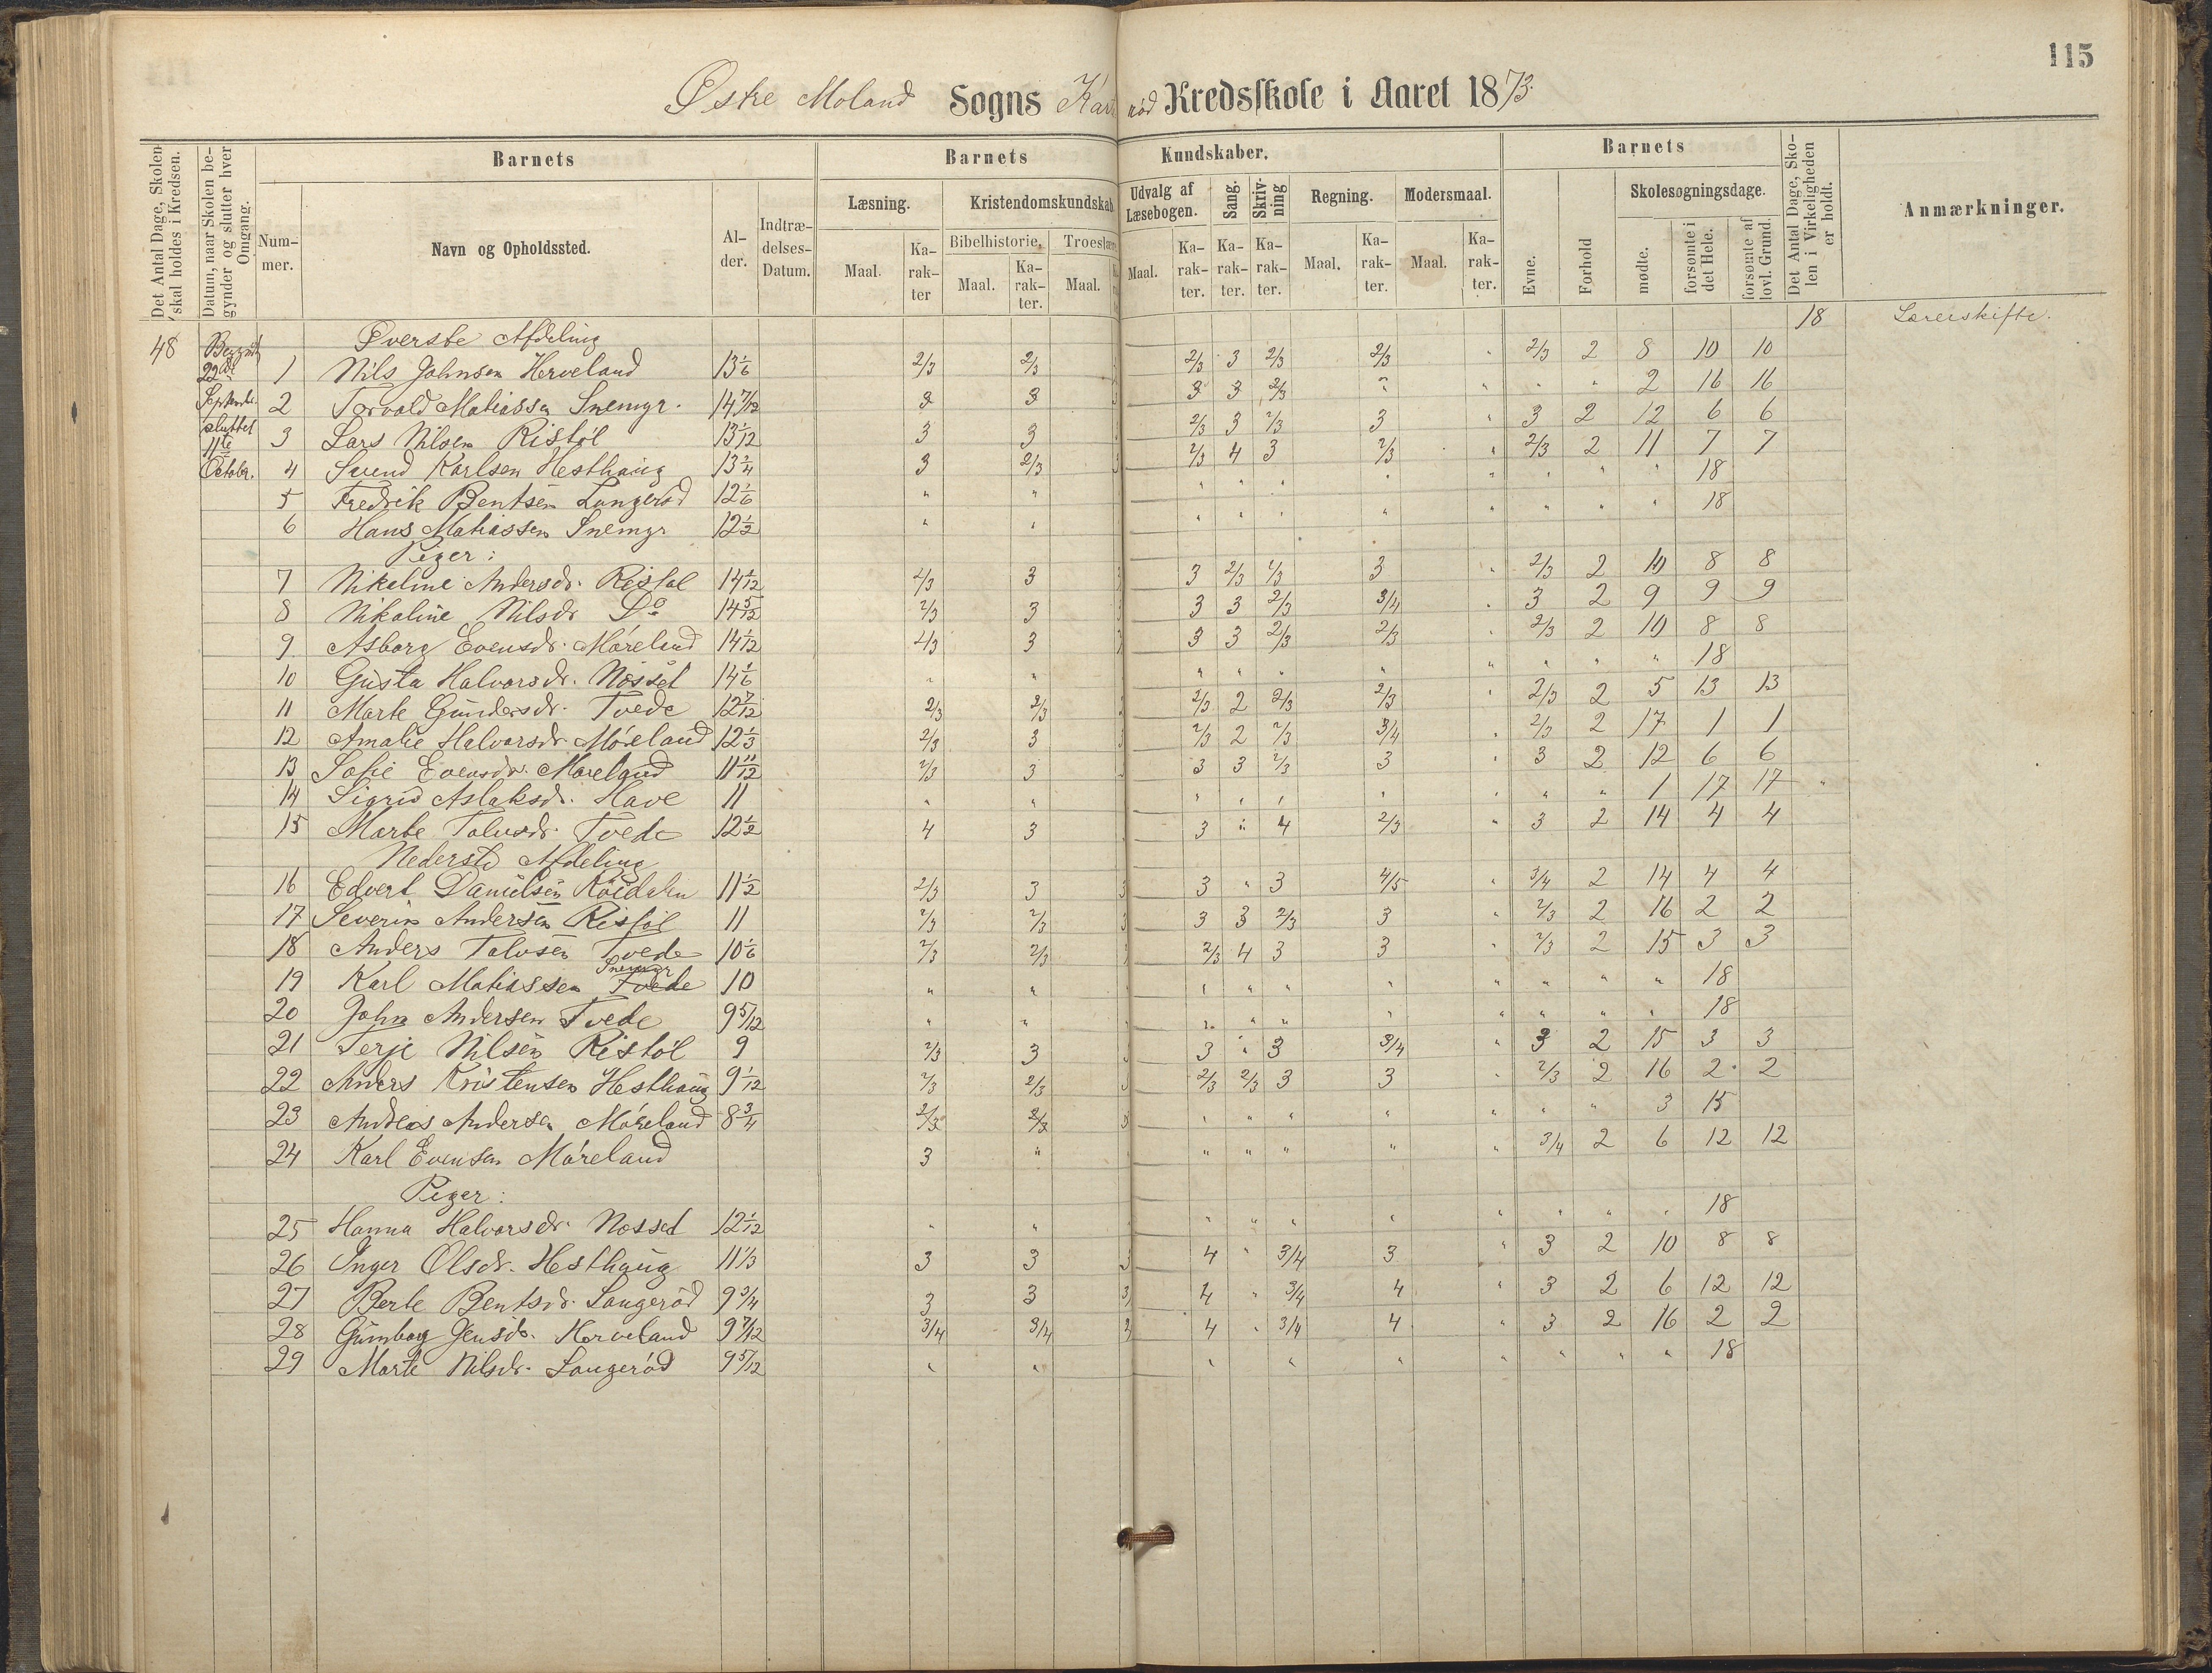 115
Østre Moland Sogns Kredsskole i Aaret 1873.
Det Antal Dage, Skolen skal holdes i Kredsen.
Datum, naar Skolen begynder og slutter hver Omgang.
Barnets
Nummer.
Navn og Opholdssted.
Alder.
Indtrædelses-Datum.
Barnets Kundskaber.
Læsning.
Maal.
Karakter
Kristendomskundskab
Bibelhistorie.
Maal.
Karakter.
Maal.
Udvalg af Læsebogen.
Maal.
Karakter.
Sang.
Karakter.
Skrivning
Karakter.
Regning.
Maal.
Karakter.
Modersmaal.
Maal.
Karakter.
Barnets
Evne.
Forhold
Skolesøgningsdage.
mødte.
forsømte i det Hele.
forsømte af lovl. Grund.
Det Antal Dage, Skolen i Virkeligheden er holdt.
Anmærkninger.
48 Øverste Afdeling 18 Lærerskifte.
22de September sluttet 11te Octobr.
1 Nils Johnsen Herveland 13 1/6 2/3 2/3 2/3 3 2/3 2/3 " 2/3 2 8 10 10
2 Torvald Matiassen Snemyr. 14 7/12 3 3 3 3 2/3 " " " " 2 16 16
3 Lars Nilsen Ristøl 13 1/12 3 3 2/3 3 2/3 3 " 3 2 12 6 6
4 Svend Karlsen Hesthaug 13 1/4 3 2/3 2/3 4 3 2/3 " 2/3 2 11 7 7
5 Fredrik Bentsen Langerød 12 1/6 " " " " " " " " " " 18
6 Hans Matiassen Snemyr 12 1/2 " " " " " " " " " " 18
Piger:
7 Nikoline Andersdr. Ristøl 14 1/12 2/3 3 3 2/3 2/3 3 " 2/3 2 10 8 8
8 Nikoline Nilsdr Do 14 5/12 2/3 3 3 3 2/3 3/4 " 3 2 9 9 9
9 Asborg Evensdr. Møreland 14 1/12 2/3 3 3 3 2/3 2/3 " 2/3 2 10 8 8
10 Gusta Halvorsdr. Nosset 14 1/6 " " " " " " " " " " 18
11 Marte Gundersdr. Tvede 12 7/12 2/3 2/3 2/3 2 2/3 2/3 " 2/3 2 5 13 13
12 Amalie Halvorsdr. Møreland 12 1/3 2/3 3 2/3 2 2/3 3/4 " 2/3 2 17 1 1
13 Sofie Evensdr. Møreland 11 11/12 2/3 3 3 3 2/3 3 " 3 2 12 6 6
14 Sigrid Aslaksdr. Have 11 " " " " " " " " " 1 17 17
15 Marte Talvesdr. Tvede 12 1/2 4 3 3 " 4 2/3 " 3 2 14 4 4
Nederste Afdeling
16 Edvert Danielsen 11 1/2 2/3 3 3 3 " 3 4/5 " 3/4 2 14 4 4
17 Severin Andersen Ristøl 11 2/3 2/3 3 3 3 2/3 3 " 2/3 2 16 2 2
18 Anders Talvsen Tvede 10 1/6 2/3 2/3 2/3 4 3 3 " 2/3 2 15 3 3
19 Karl Matiassen Tvede Snemyr 10 " " " " " " " " " " 18
20 John Andersen Tvede 9 5/12 " " " " " " " " " " 18
21 Terje Nilsen Ristøl 9 2/3 3 3 " 3 3/4 " 3 2 15 3 3
22 Anders Kristensen Hesthaug 9 1/12 2/3 2/3 2/3 2/3 3 3 " 2/3 2 16 2 2
23 Andreas Andersen Møreland 8 3/4 2/3 2/3 3 " " " " " " " 3 15
24 Karl Evensen Møreland 3 " " " " " " 3/4 2 6 12 12
Piger:
25 Hanna Halvorsdr. Nosset 12 1/12 " " " " " " " " " " 18
26 Inger Olsdr. Hesthaug 11 1/3 3 3 3 4 " 3/4 3 " 3 2 10 8 8
27 Berte Bentsdr. Langerød 9 3/4 3 3 3 4 " 3/4 4 " 3 2 6 12 12
28 Gunborg Jensdr. Herveland 9 7/12 3/4 3/4 4 " 3/4 4 " 3 2 16 2 2
29 Marte Nilsdr. Langerød 9 5/12 " " " " " " " " " 18